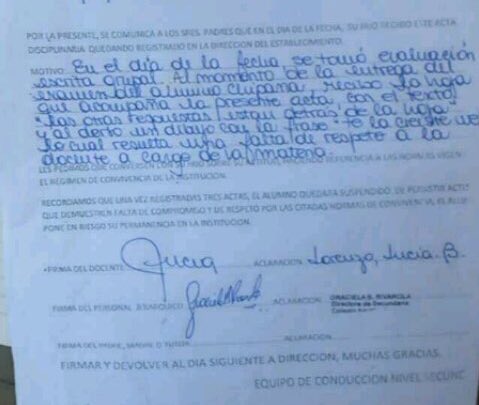 POR LA PRESENTE, SE COMUNICA A LOS SRES. PADRES QUE EN EL DIA DE LA FECHA, SU HIJO RECIBIO ESTE ACTA
DISCIPLINARIA QUEDANDO REGISTRADO EN LA DIRECCION DEL ESTABLECIMIENTO.
MOTIVO: En el día de la fecha, se tomó evaluación
escrita grupal. Al momento de la entrega del
alumno recibo la hoja
que acompaña la presente acta, con el texto
"las otras respuestas estan detras de la hoja"
y al dorso un dibujo con la frase "te la
lo cual resulta una falta de respeto a la
docente a cargo de la materia.
LES PEDIMOS QUE CONVERSEN CON HACIENDO REFERENCIA A LAS NORMAS
EL REGIMEN DE CONVIVENCIA DE LA INSTITUCION.
RECORDAMOS QUE UNA VEZ REGISTRADAS TRES ACTAS, EL ALUMNO QUEDARA SUSPENDIDO, DE PERSISTIR
QUE DEMUESTREN FALTA DE COMPROMISO Y DE RESPETO POR LAS CITADAS NORMAS DE CONVIVENCIA, EL
PONE EN RIESGO SU PERMANENCIA EN LA INSTITUCION.
FIRMA DEL DOCENTE: Lucia ACLARACION: Lorenzo, Lucia B.
FIRMA DEL PERSONAL JERARQUICO ACLARACION GRACIELA B. RIVAROLA
Directora de Secundaria
FIRMA DEL PADRE, MADRE O TUTOR ACLARACION
FIRMAR Y DEVOLVER AL DIA SIGUIENTE A DIRECCION, MUCHAS GRACIAS.
EQUIPO DE CONDUCCION NIVEL SECUNC